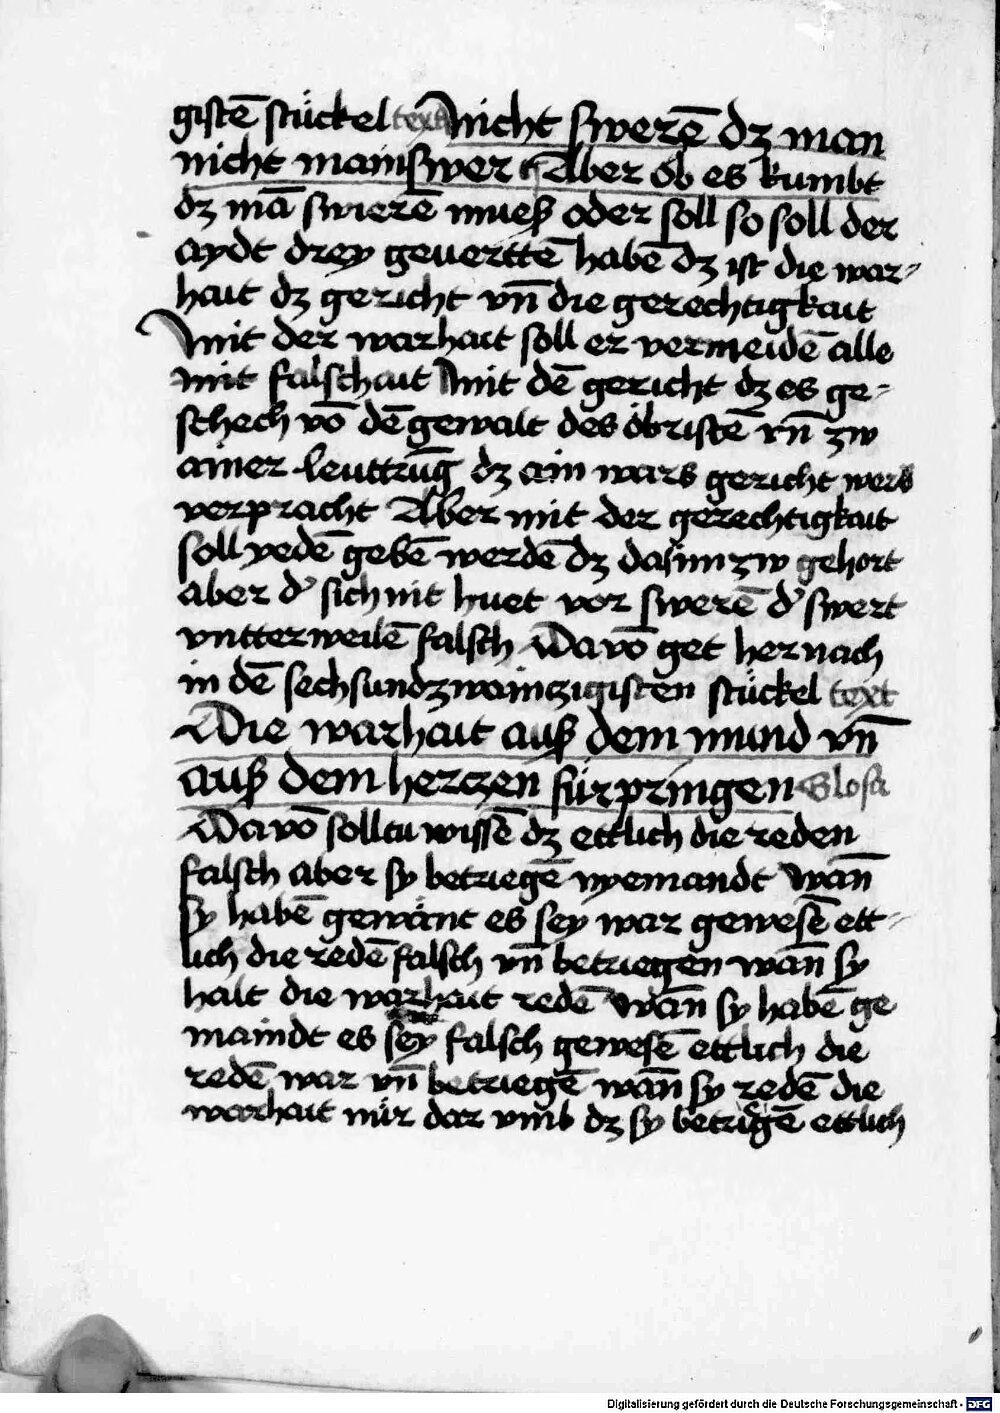 gistē stückel text nicht swerē dz man
nicht mainswer Aber ob es kumbt
dz mā swerē mueß oder soll so soll der
aydt drey geverttē habē dz ist die war-
hait dz gericht vn̄ die gerechtigkait
mit der warhait soll er vermeidē alle
mit falschait mit dē gericht dz es ge-
schech vō dē gewalt des öbristē vn̄ zw
ainer leuttrūg dz ain wars gericht werd
verpracht Aber mit der gerechtigkait
soll yedē gebē werdē dz das im zw gehort
aber d' sich nit huet vor swerē d' swert
vntterweilē falsch Davō get hernach
in dē sechsundzwainczigisten stückel text
Die warhait auß dem mund vn̄
auß dem herczen fürpringen Glosa
Davō solltu wissē dz ettlich die reden
falsch aber sy betriegē nyemandt wān
sy habē gewänt es sey war gewesē ett-
lich die redē falsch vn̄ betriegen wān sy
halt die warhait redē wān sy habē ge
maindt es sey falsch gewesē ettlich die
redē war vn̄ betriegē wān sy redē die
warhait nür dar vmb dz sy betrigē ettlich
Digitalisierung gefördert durch die Deutsche Forschungsgemeinschaft - DFG